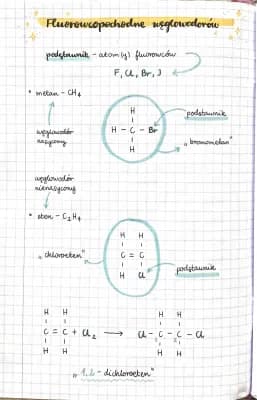 Fluorowcopochodne węglowodorów
podstawnik - atom(y) fluorowców
F, Cl, Br, J
• metan - CH4
węglowodór
nasycony
H
H - C - Br
H
podstawnik
„bromometan"
węglowodór
nienasycony
• eten - C2H4
„chloroeten"
H H
C = C
H Cl
podstawnik
H H
C = C + Cl2 → Cl - C - C - Cl
H H
H H
H H
„1,2 - dichloroeten"